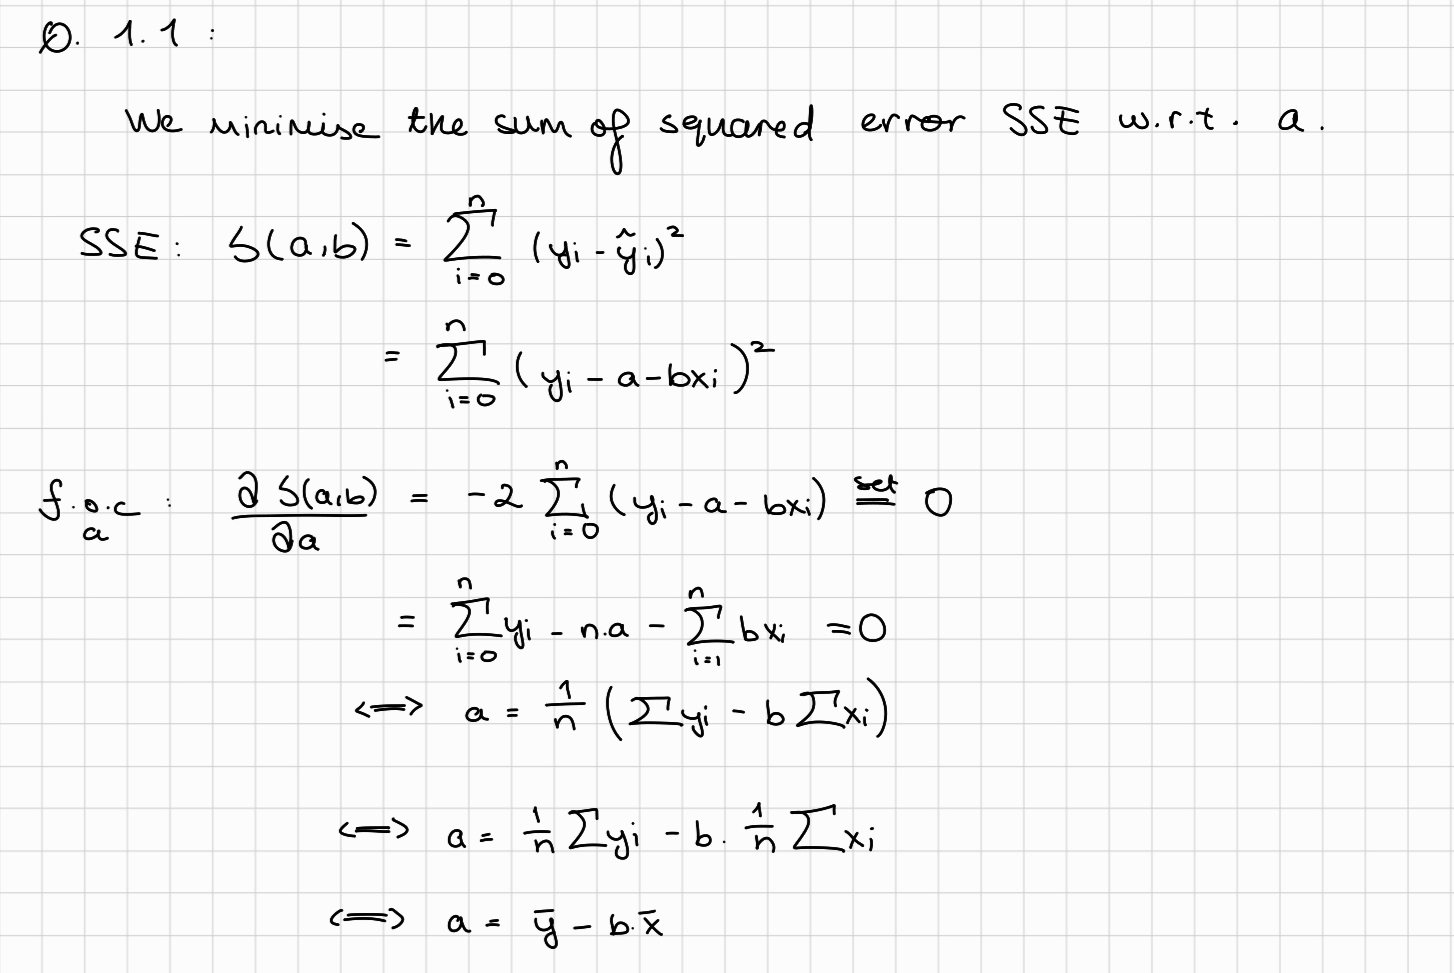 Q. 1.1 :
We minimise the sum of squared error SSE w.r.t. a.
SSE: S(a,b) = ∑_{i=0}^{n} (yᵢ - ŷᵢ)²
= ∑_{i=0}^{n} (yᵢ - a - bxᵢ)²
f.o.c_a : ∂S(a,b)/∂a = -2 ∑_{i=0}^{n} (yᵢ - a - bxᵢ) \overset{set}{=} 0
= ∑_{i=0}^{n} yᵢ - n.a - ∑_{i=1}^{n} bxᵢ = 0
⟺ a = 1/n (∑yᵢ - b∑xᵢ)
⟺ a = 1/n ∑yᵢ - b. 1/n ∑xᵢ
⟺ a = ȳ - b.x̄